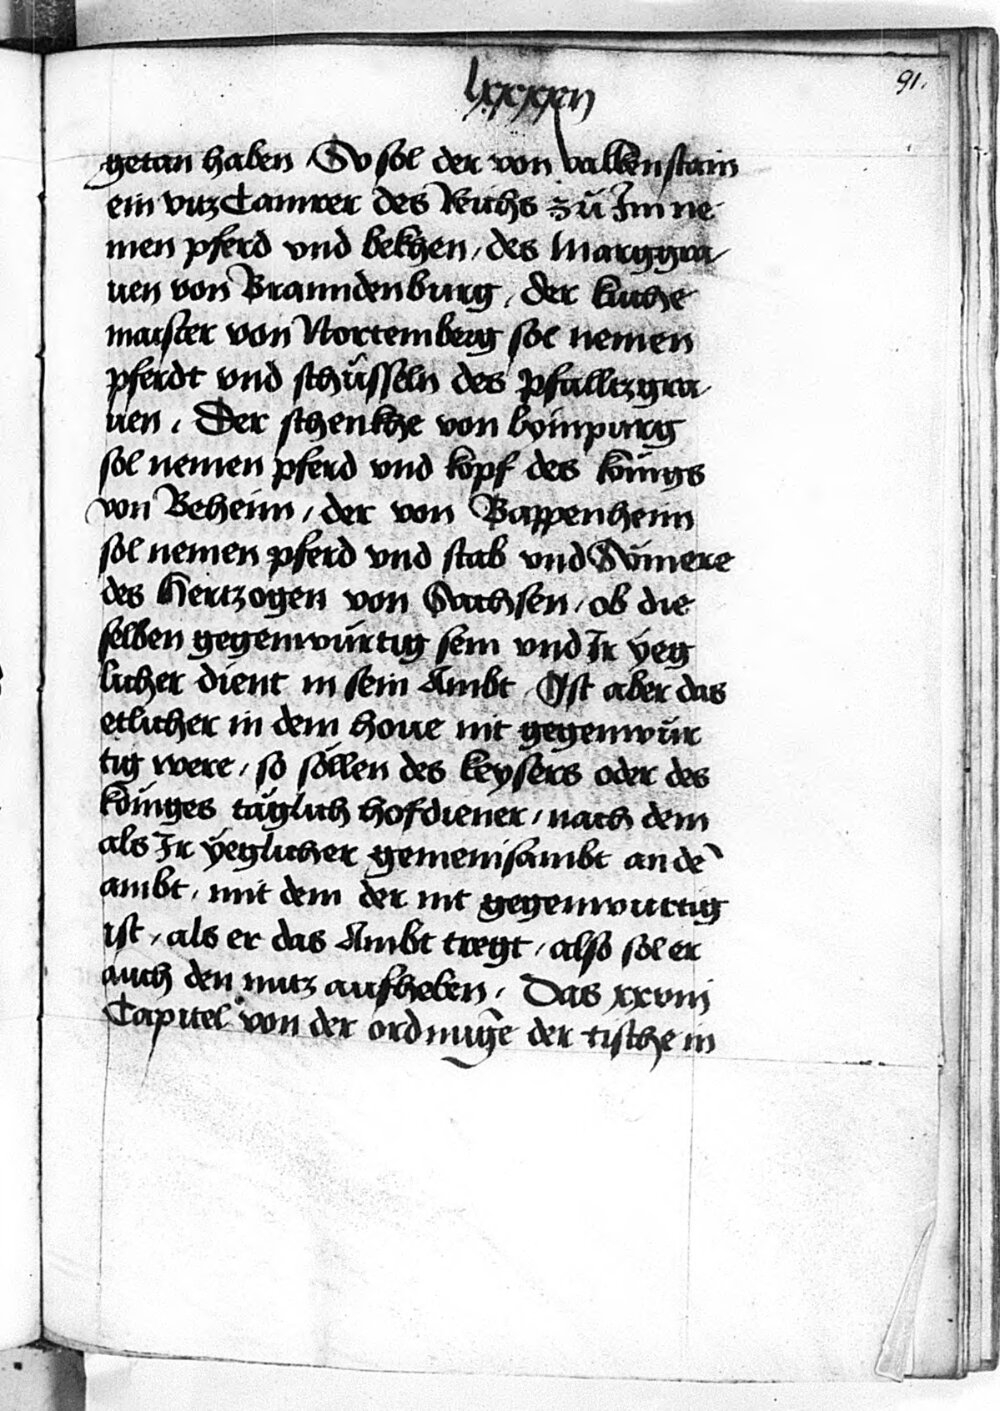 lxxxxii
91.
getan haben / So sol der von valkenstain
ein vnz Camrer des Reichs zů Im ne
men pferd vnd bekhen / des Marggra
uen von Branndenburg / der kuche
maister von Nortemberg sol nemen
pferdt vnd schüsseln des pfalltzgra
uen / Der schenkhe von lÿmpurg
sol nemen pferd vnd kopf des künigs
von Beheim / der von Bappenheim
sol nemen pferd vnd stab vnd Sumere
des Hertzogen von Sachsen / ob die
selben gegenwürtig sein vnd Ir ÿeg
licher dient in sein Ambt / Ist aber das
etlicher in dem houe nit gegenwür
tig were / so söllen des keysers oder des
künges täglich hofdiener / nach dem
als Ir ÿeglicher gemeinsambt an dē
ambt / mit dem der nit gegenwurtig
ist / als er das Ambt tregt / also sol er
auch den nutz aufheben / Das xxviij
Capitel von der ordnūge der tische in